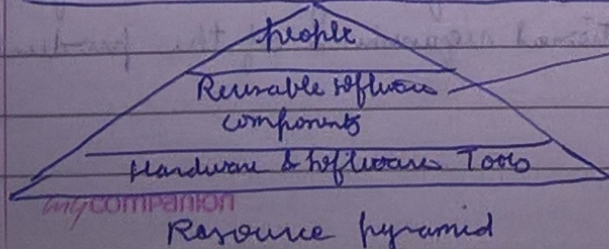 people
Reusable software
components
Hardware & software Tools
mycompanion
Resource pyramid